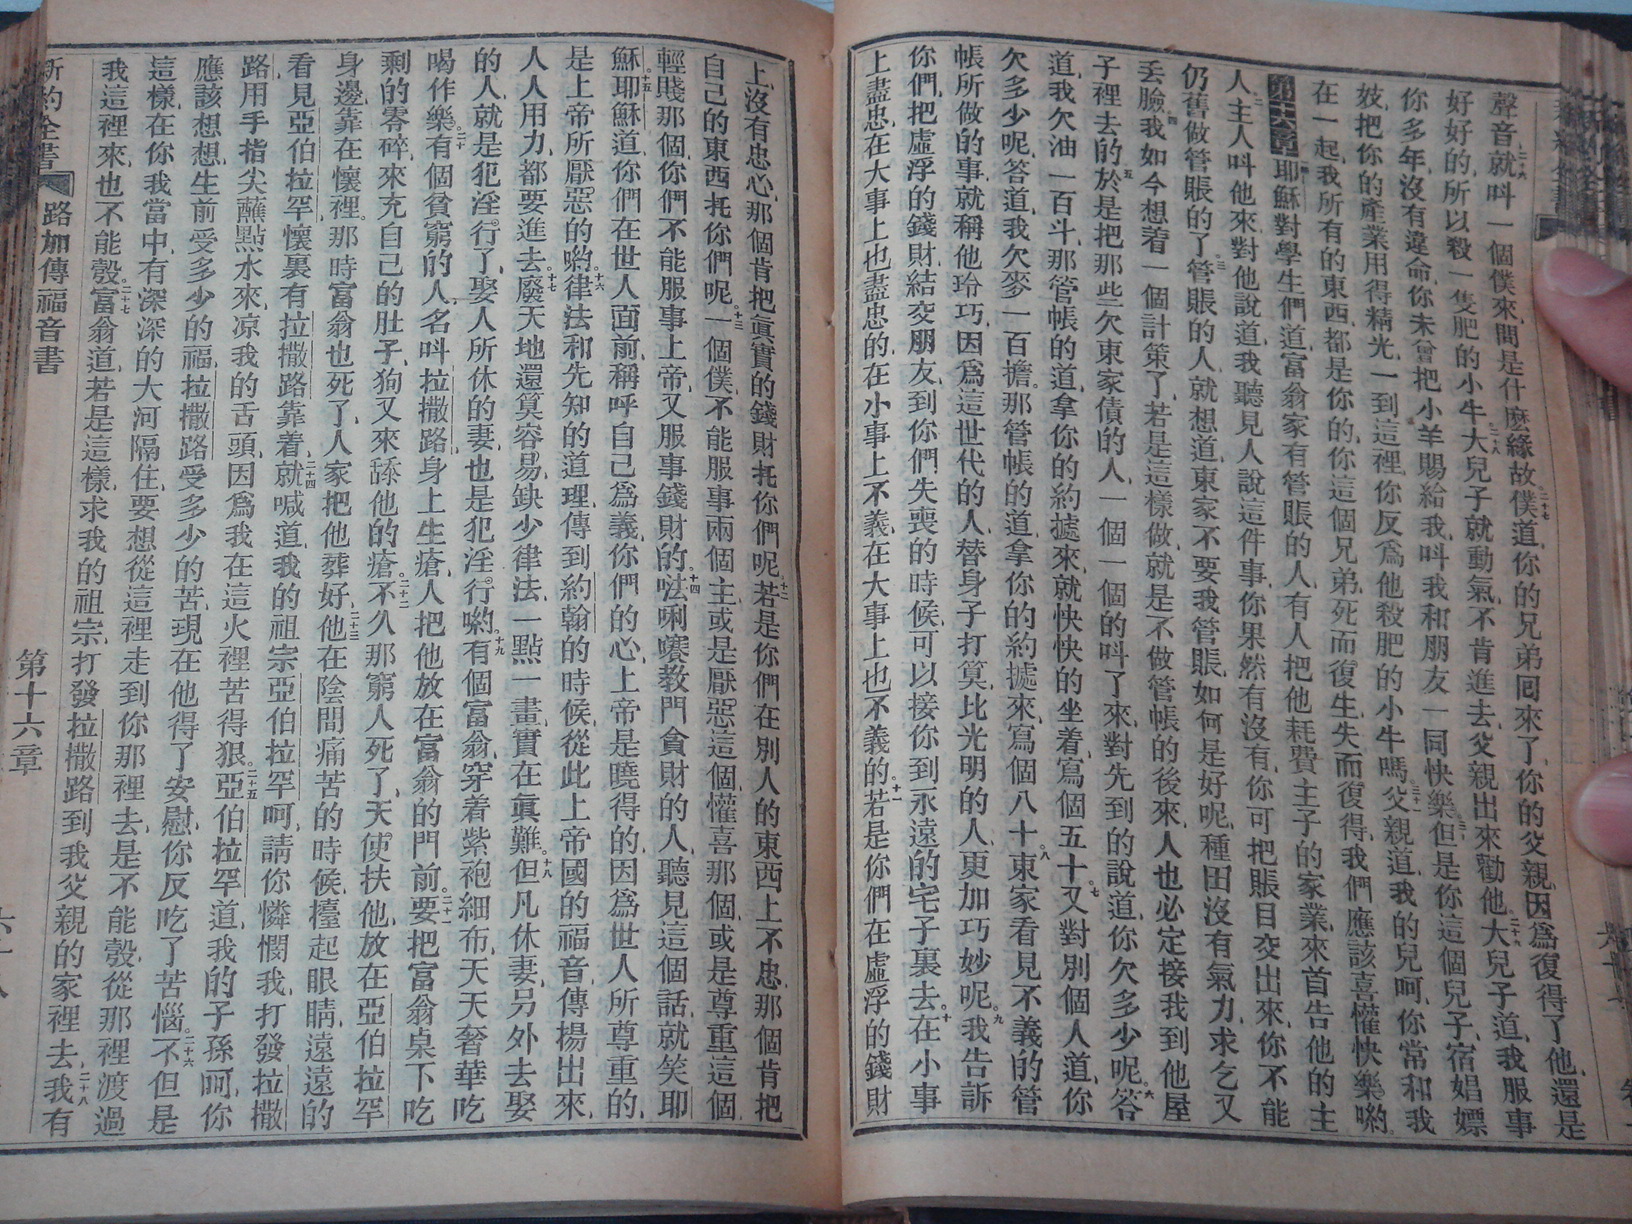 聲音就叫一個僕來問是什麽緣故僕道你的兄弟囘來了你的父親因爲復得了他還是
好好的所以殺一隻肥的小牛大兒子就動氣不肯進去父親出來勸他大兒子道我服事
你多年沒有違命你未曾把小羊賜給我叫我和朋友一同快樂但是你這個兒子宿娼嫖
妓把你的產業用得精光一到這裡你反爲他殺肥的小牛嗎父親道我的兒呵你常和我
在一起我所有的東西都是你的你這個兄弟死而復生失而復得我們應該喜懽快樂喲
第十六章 耶穌對學生們道富翁家有管賬的人有人把他耗費主子的家業來首告他的主
人主人叫他來對他說道我聽見人說這件事你果然有沒有你可把賬目交出來你不能
仍舊做管賬的了管賬的人就想道東家不要我管賬如何是好呢種田沒有氣力求乞又
丢臉我如今想着一個計策了若是這樣做就是不做管帳的後來人也必定接我到他屋
子裡去的於是把那些欠東家債的人一個一個的叫了來對先到的說道你欠多少呢答
道我欠油一百斗那管帳的道拿你的約㨿來就快快的坐着寫個五十又對別個人道你
欠多少呢答道我欠麥一百擔那管帳的道拿你的約㨿來寫個八十東家看見不義的管
帳所做的事就稱他玲巧因爲這世代的人替身子打算比光明的人更加巧妙呢我告訴
你們把虛浮的錢財結交朋友到你們失喪的時候可以接你到永遠的宅子裏去在小事
上盡忠在大事上也盡忠的在小事上不義在大事上也不義的若是你們在虛浮的錢財
上沒有忠心那個肯把眞實的錢財托你們呢若是你們在別人的東西上不忠那個肯把
自己的東西托你們呢一個僕不能服事兩個主或是厭惡這個懽喜那個或是尊重這個
輕賤那個你們不能服事上帝又服事錢財的㗒唎㘔教門貪財的人聽見這個話就笑耶
穌耶穌道你們在世人面前稱呼自己爲義你們的心上帝是曉得的因爲世人所尊重的
是上帝所厭惡的喲律法和先知的道理傳到約翰的時候從此上帝國的福音傳揚出來
人人用力都要進去廢天地還算容易缺少律法一點一畫實在眞難但凡休妻另外去娶
的人就是犯淫行了娶人所休的妻也是犯淫行喲有個富翁穿着紫袍細布天天奢華吃
喝作樂有個貧窮的人名叫拉撒路身上生瘡人把他放在富翁的門前要把富翁桌下吃
剩的零碎來充自己的肚子狗又來舔他的瘡不久那窮人死了天使扶他放在亞伯拉罕
身邊靠在懷裡那時富翁也死了人家把他葬好他在陰間痛苦的時候擡起眼睛遠遠的
看見亞伯拉罕懷裏有拉撒路靠着就喊道我的祖宗亞伯拉罕呵請你憐憫我打發拉撒
路用手指尖蘸點水來凉我的舌頭因爲我在這火裡苦得狠亞伯拉罕道我的子孫呵你
應該想想生前受多多少的福拉撒路受多多少的苦現在他得了安慰你反吃了苦惱不但是
這樣在你我當中有深深的大河隔住要想從這裡走到你那裡去是不能彀從那裡渡過
我這裡來也不能彀富翁道若是這樣求我的祖宗打發拉撒路到我父親的家裡去我有
新約全書 路加傳福音書 第十六章 六十八